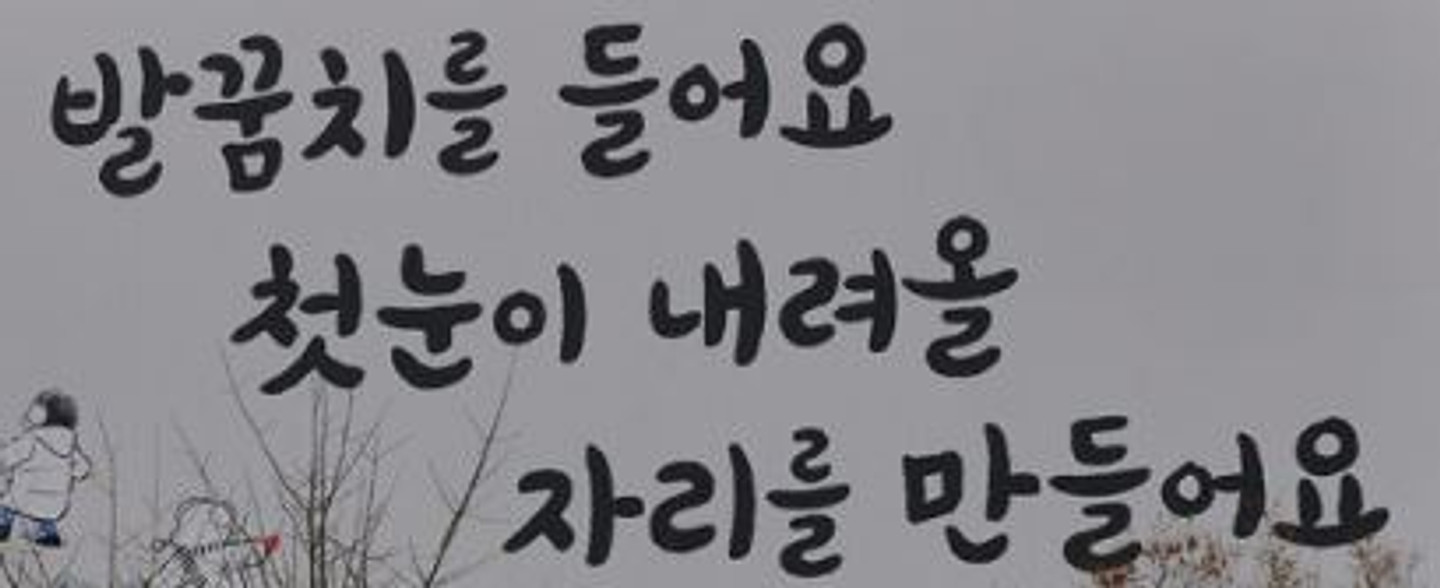 발꿈치를 들어요
첫눈이 내려올
자리를 만들어요